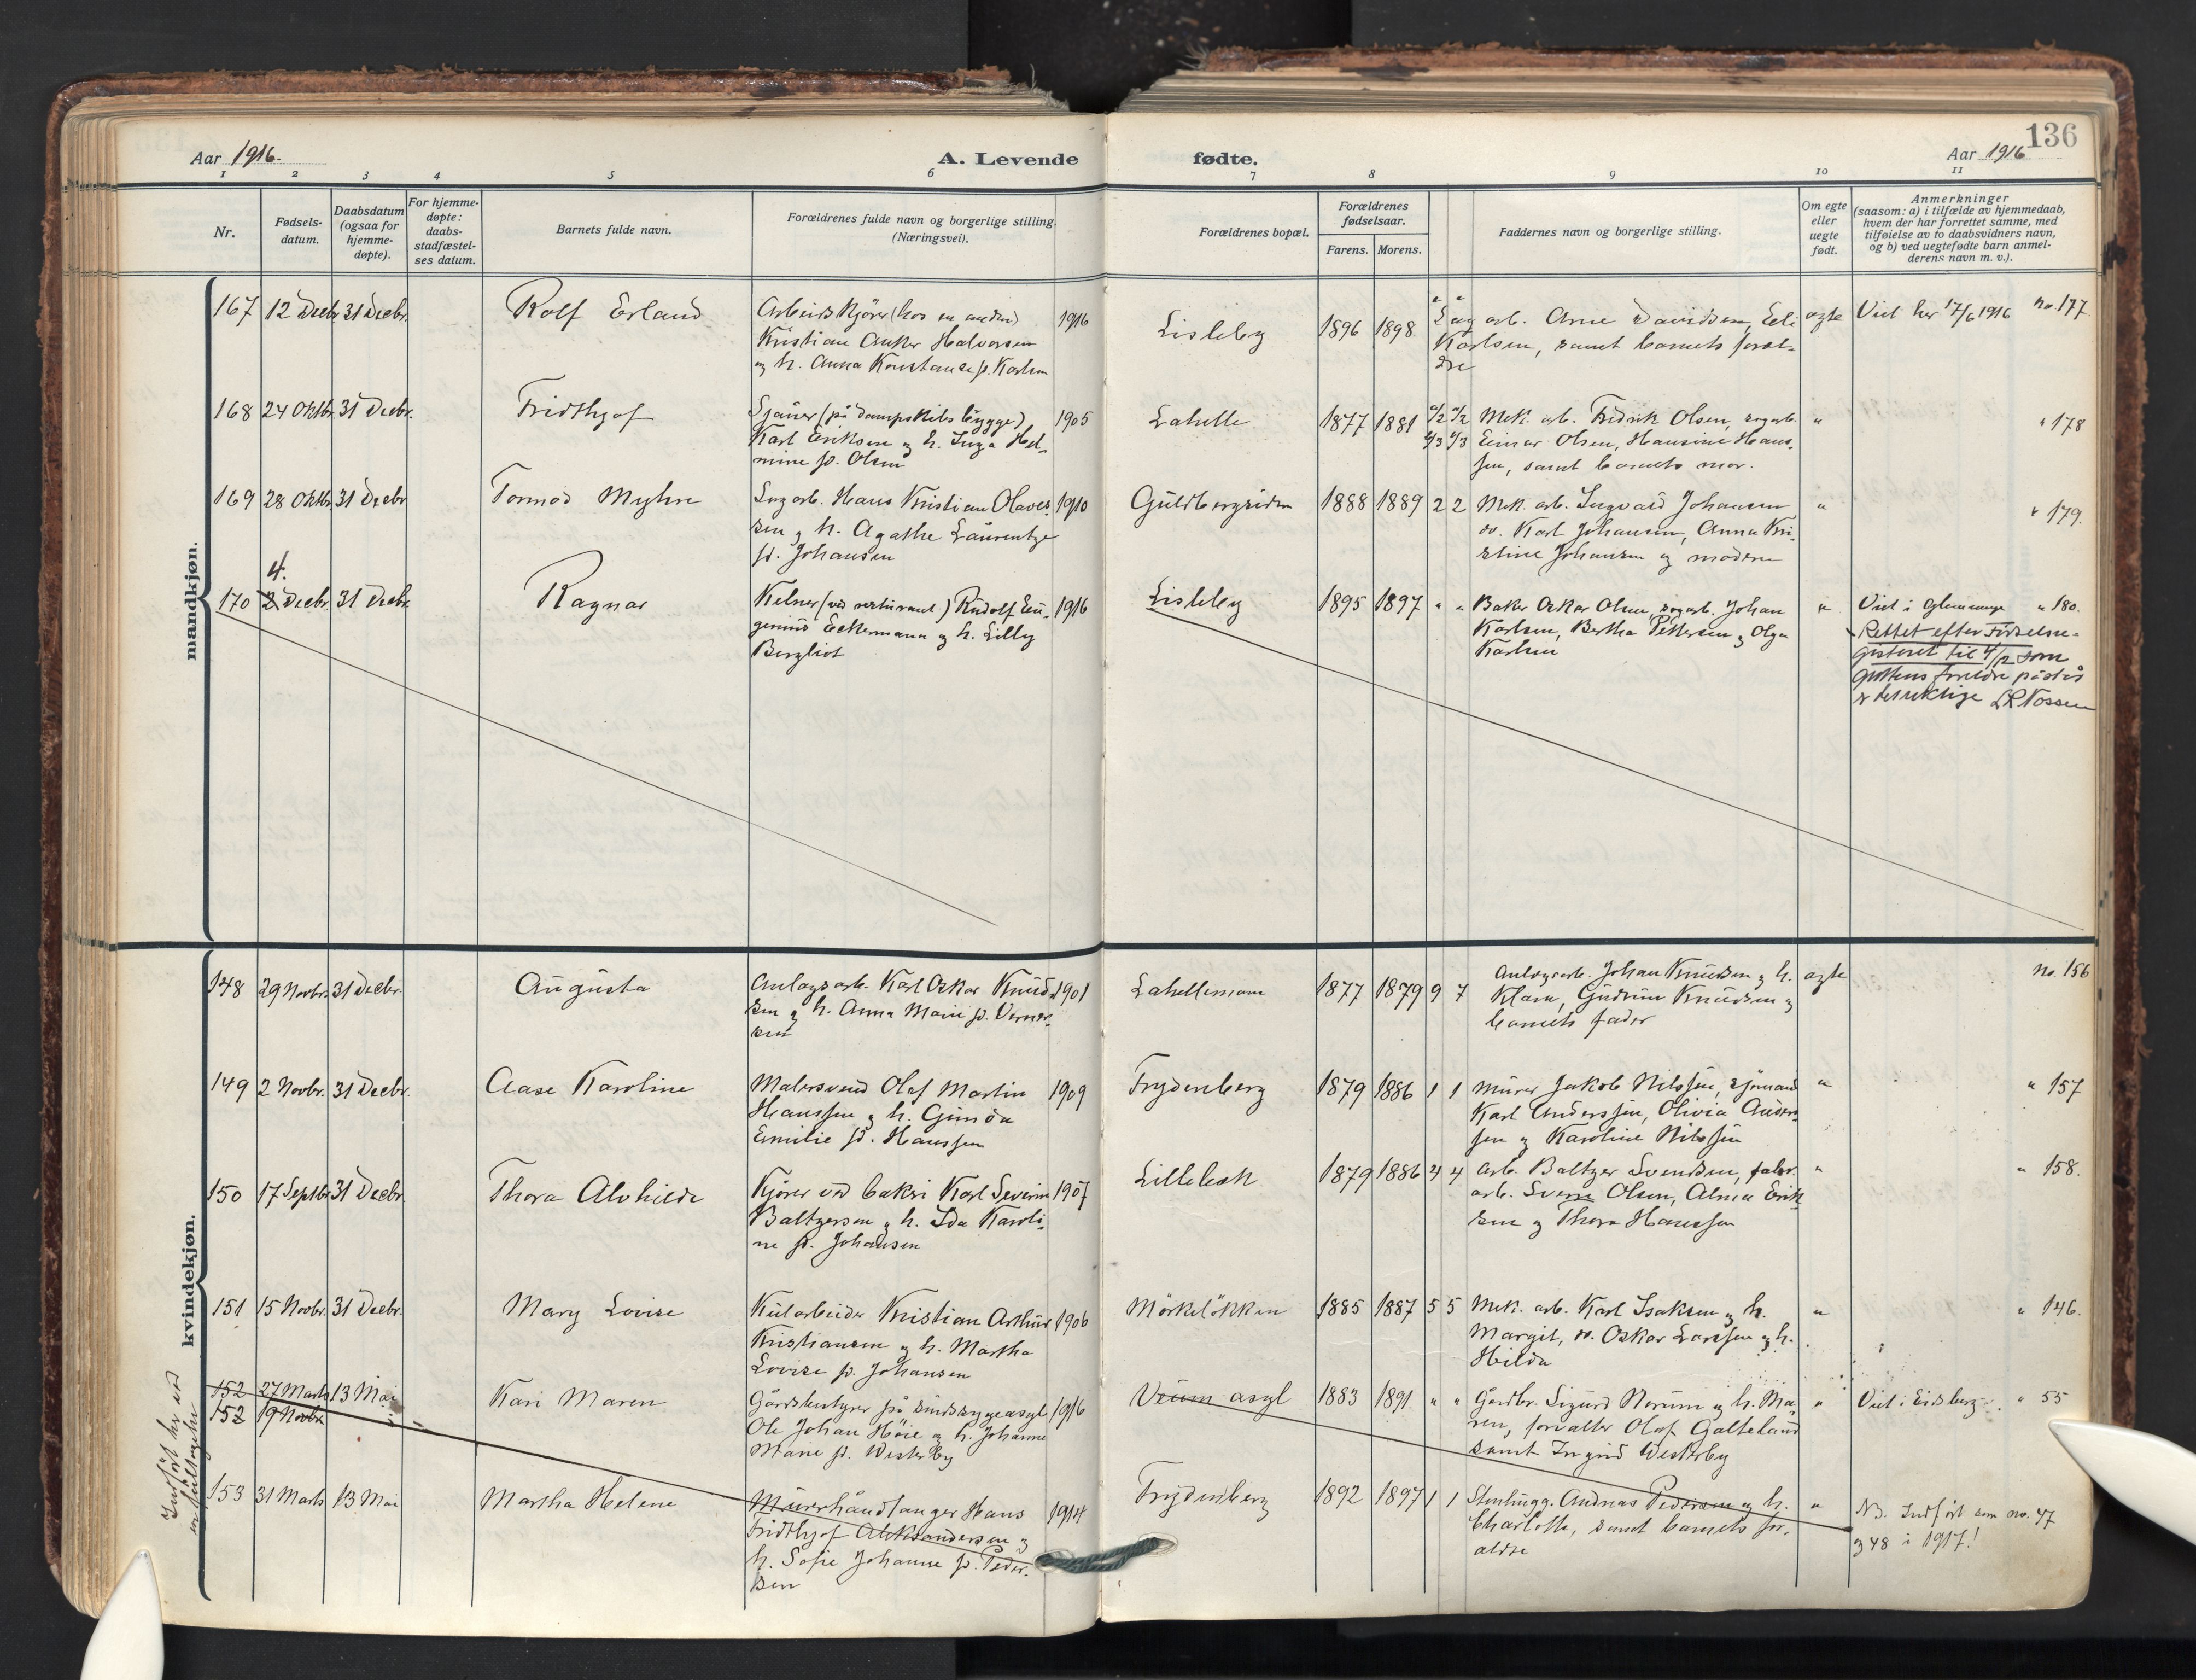 136
Aar 1916.
A. Levende
fødte.
Aar 1916
1 2 3 4 5 6 7 8 9 10 11
Nr.
Fødsels-
datum.
Daabsdatum
(ogsaa for
hjemme-
døpte).
For hjemme-
døpte:
daabs-
stadfæstel-
ses datum.
Barnets fulde navn.
Forældrenes fulde navn og borgerlige stilling
(Næringsvei).
Forældrenes bopæl.
Forældrenes
fødselsaar.
Farens. Morens.
Faddernes navn og borgerlige stilling.
Om egte
eller
uegte
født.
Anmerkninger
(saasom: a) i tilfælde av hjemmedaab,
hvem der har forrettet samme, med
tilføielse av to daabsvidners navn,
og b) ved uegtefødte barn anmel-
derens navn m. v.).
mandkjøn.
167 12 Decbr 31 Decbr. Rolf Erland
Arbeids Kjører (hos en anden) 1916
Kristian Anker Halvorsen
og h. Anna Konstanse f. Karlsen
Lisleby 1896 1898
" "
Sag arb. Arne Davidsen, Eeli
Karlsen, samt barnets foræl-
dre
egte
Viet her 17/6 1916 no. 177
168 24 Oktbr. 31 Decbr. Fridthjof
Sjauer (på dampskibs brygge) 1905
Karl Eriksen og h. Inga Hel-
mine f. Olsen
Lahelle 1877 1881
Mek. arb. Fredrik Olsen, sagarb.
Einar Olsen, Hansine Hans-
sen, samt barnets mor.
"
" 178
169 28 Oktbr 31 Decbr Tormod Myhre
Sagarb. Hans Kristian Olaves- 1910
sen og h. Agathe Laurentze
f. Johansen
Guldbergsiden 1888 1889 2 2
Mek. arb. Ingvald Johansen
do. Karl Johansen, Anna Kri-
stine Johansen og moderen
"
" 179.
4.
170 2 Decbr. 31 Decbr. Ragnar
Kelner (ved restaurant.) Rudolf Eu- 1916
genius Eckermann og h. Lilly
Bergliot
Lisleby 1895 1897 " "
Baker Oskar Olsen, sagarb. Johan
Karlsen, Bertha Pettersen og Olga
Karlsen
"
Viet i Glemminge " 180.
Rettet efter Fødselsre-
gisteret til 4/12 som
guttens foreldre påstår
er det riktige
kvindekjøn.
148 29 Novbr. 31 Decbr. Augusta
Anlegsarb. Karl Oskar Knud- 1901
sen og h. Anna Marie f. Verner-
sen
Lahellemoen 1877 1879 9 7
Anlegsarb. Johan Knudsen og h.
Klara, Gudrun Knudsen og
barnets fader
egte
no. 156
149 2 Novbr. 31 Decbr. Aase Karoline
Malersvend Olaf Martin 1909
Hanssen og h. Gunda
Emilie f. Hanssen
Frydenberg 1879 1886 1 1
Murer Jakob Nilssen, sjømand
Karl Anderssen, Olivia Anders-
sen og Karoline Nilssen
"
" 157
150 17 Septbr 31 Decbr. Thora Alvhilde
Kjører ved bakeri Karl Severin 1907
Baltzersen og h. Ida Karoli-
ne f. Johansen
Lillebæk 1879 1886 4 4
Arb. Baltzer Svendsen, fabr.
arb. Sverre Olsen, Alma Erik-
sen og Thora Hanssen
"
" 158.
151 15 Novbr. 31 Decbr. Mary Lovise
Kularbeider Kristian Arthur 1906
Kristiansen og h. Martha
Lovise f. Johansen
Mörkelökken 1885 1887 5 5
Mek. arb. Karl Isaksen og h.
Margit, do. Oskar Larssen og h.
Hilda
"
" 146.
Indført her ved
en feiltagelse
152 27 Marts 13 Mai Kari Maren
152 19 Novbr
Gårdsbestyrer på sindssygeasyl 1916
Ole Johan Höie og h. Johanne
Marie f. Westerby
Veum asyl 1883 1891 " "
Gårdbr. Sigurd Norum og h. Ma-
ren, forvalter Olaf Galteland
samt Ingrid Westerby
"
Viet i Eidsberg " 55
153 31 Marts 13 Mai Martha Helene
Murerhåndlanger Hans 1914
Fridthjof Aleksandersen og
h. Sofie Johanne f. Peder-
sen
Frydenberg 1892 1897 1 1
Stenhugg. Andreas Pedersen og h.
Charlotte, samt barnets for-
ældre
"
NB. Indført som no. 47
og 48 i 1917!